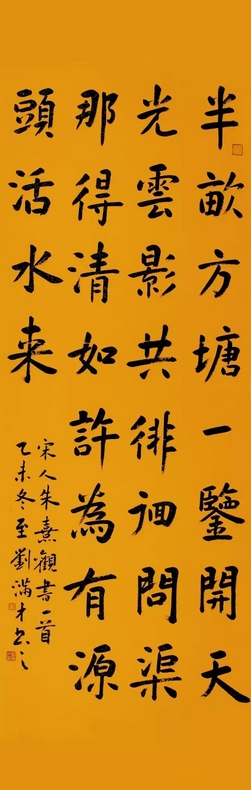 半畝方塘一鑿開天
光雲影共徘徊問渠
那得清如許為有源
頭活水来
宋人朱熹觀書一首
乙未冬至劉滿才书之